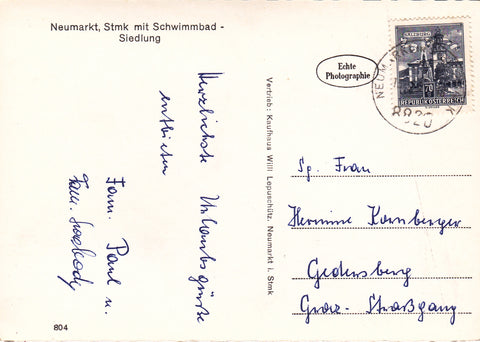 Neumarkt, Stmk mit Schwimmbad -
Siedlung
Herzlichste Urlaubsgrüße
entbieten
Fam. Paul u.
Fam.
804
Vertrieb: Kaufhaus Willi Lepuschütz, Neumarkt i. Stmk.
Echte
Photographie
SALZBURG
70
REPUBLIK ÖSTERREICH
NEUMARKT
8820
Sg. Frau
Hermine Kornberger
Gedersberg
Graz - Straßgang